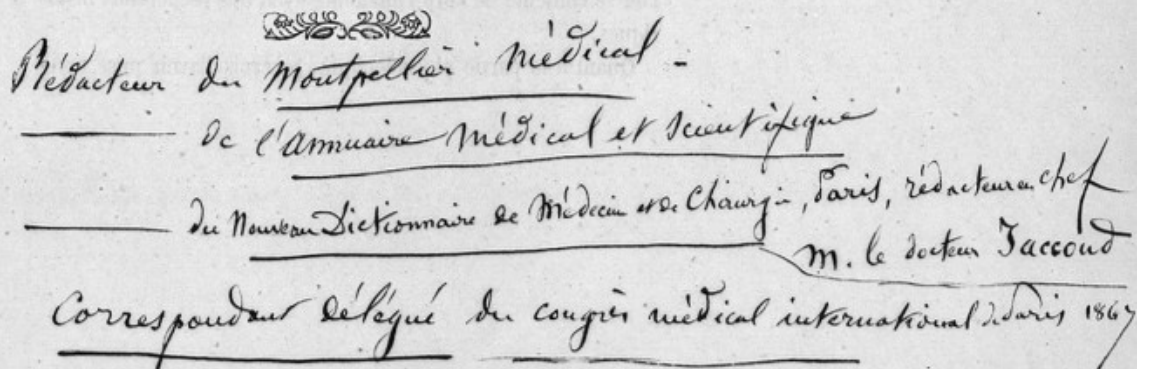 Rédacteur du Montpellier Médical -
——— de l'Annuaire Médical et Scientifique
——— du Nouveau Dictionnaire de Médecine et de Chirurgie, Paris, rédacteur en chef
M. le docteur Jaccoud
Correspondant délégué du congrès médical international de Paris 1867